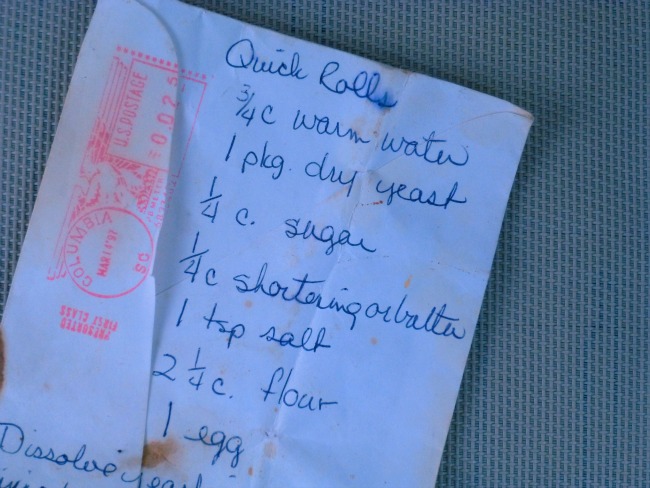 Quick Rolls
3/4 c warm water
1 pkg. dry yeast
1/4 c. sugar
1/4 c shortening or butter
1 tsp salt
2 1/4 c. flour
1 egg
Dissolve yeast
U.S.POSTAGE
COLUMBIA
SC
MAR 11'97
PRESORTED
FIRST CLASS